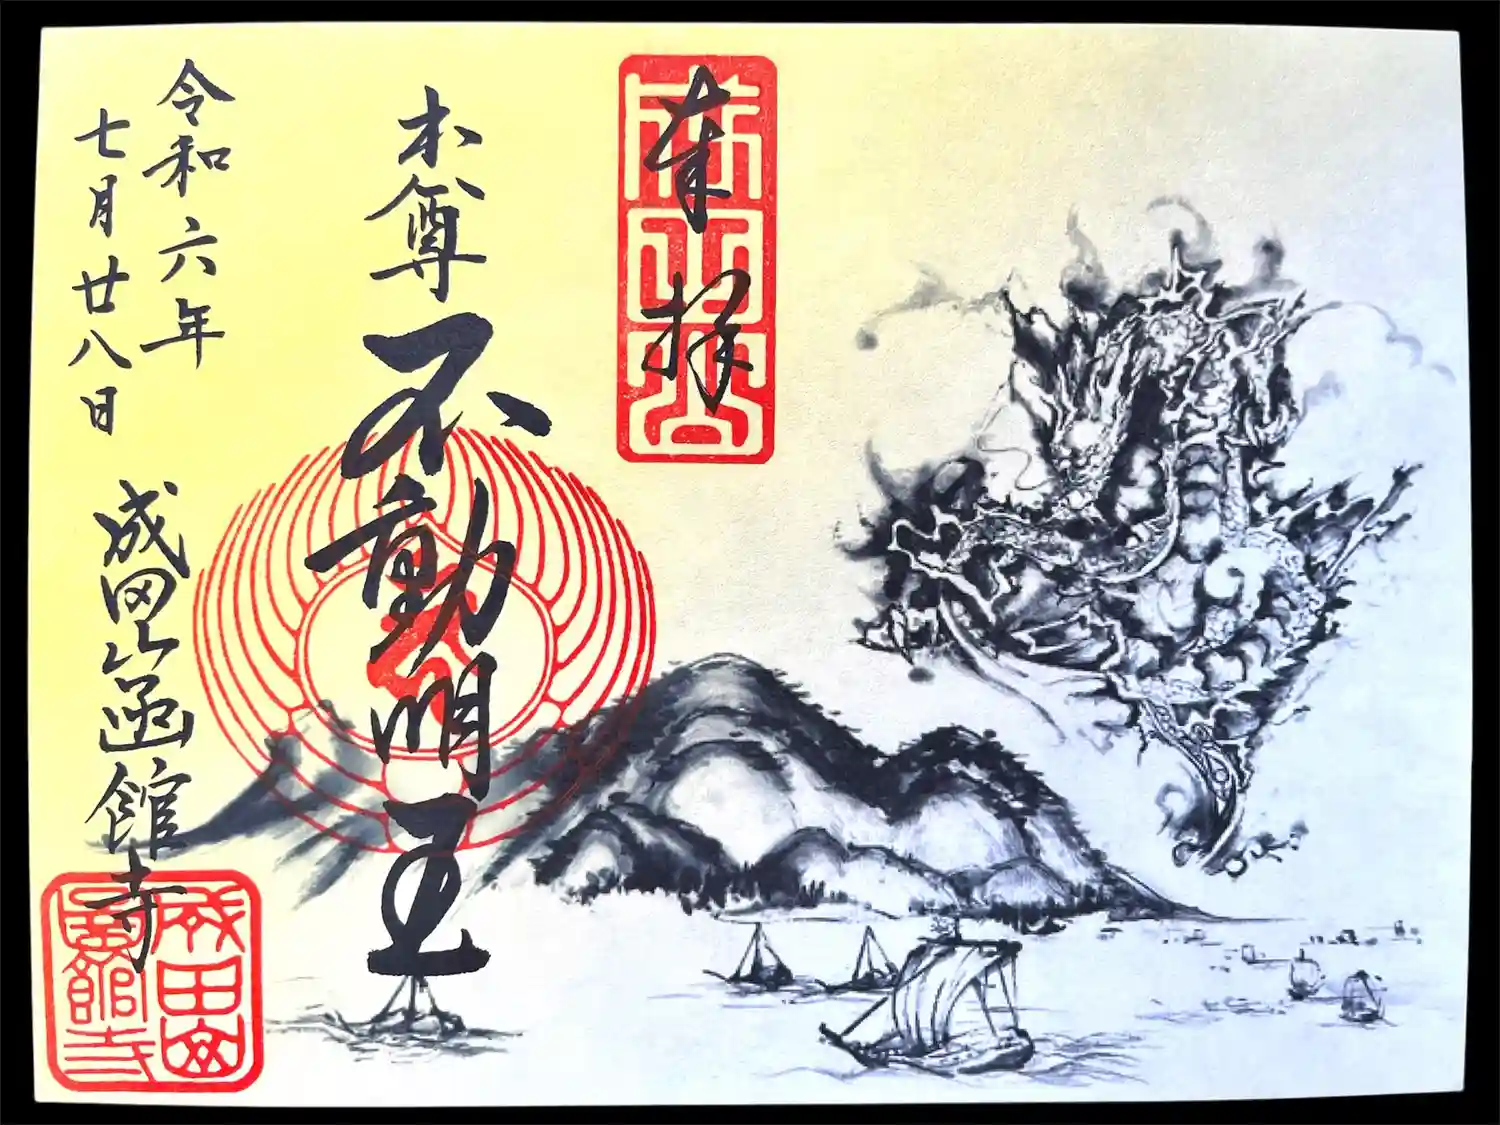 奉拝
本尊
不動明王
令和六年
七月廿八日
成田山函館寺
成田山
函館寺